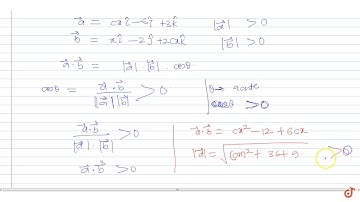 a⃗ = cxî − 6ĵ + 3k̂    |a⃗| > 0
b⃗ = xî − 2ĵ + 2cxk̂    |b⃗| > 0
a⃗·b⃗ = |a⃗| |b⃗| cosθ
cosθ = a⃗·b⃗ / |a⃗||b⃗| > 0    θ → acute
cosθ > 0
a⃗·b⃗ / |a⃗|·|b⃗| > 0    a⃗·b⃗ = cx² − 12 + 6cx
a⃗·b⃗ > 0    |a⃗| = √(cx)² + 36 + 9 > 0